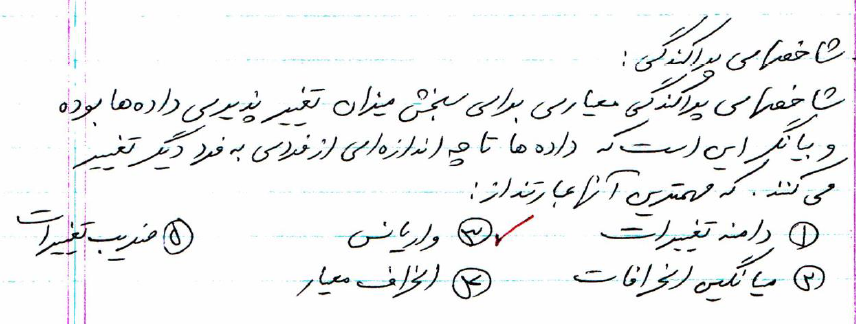 شاخصهای پراکندگی :
شاخصهای پراکندگی معیاری برای سنجش میزان تغییر پذیری داده‌ها بوده
و بیانگر این است که داده ها تا چه اندازه‌ای از فردی به فرد دیگر تغییر
می کنند . که مهمترین آنها عبارتند از :
① دامنه تغییرات ③ واریانس ⑤ ضریب تغییرات
② میانگین انحرافات ④ انحراف معیار